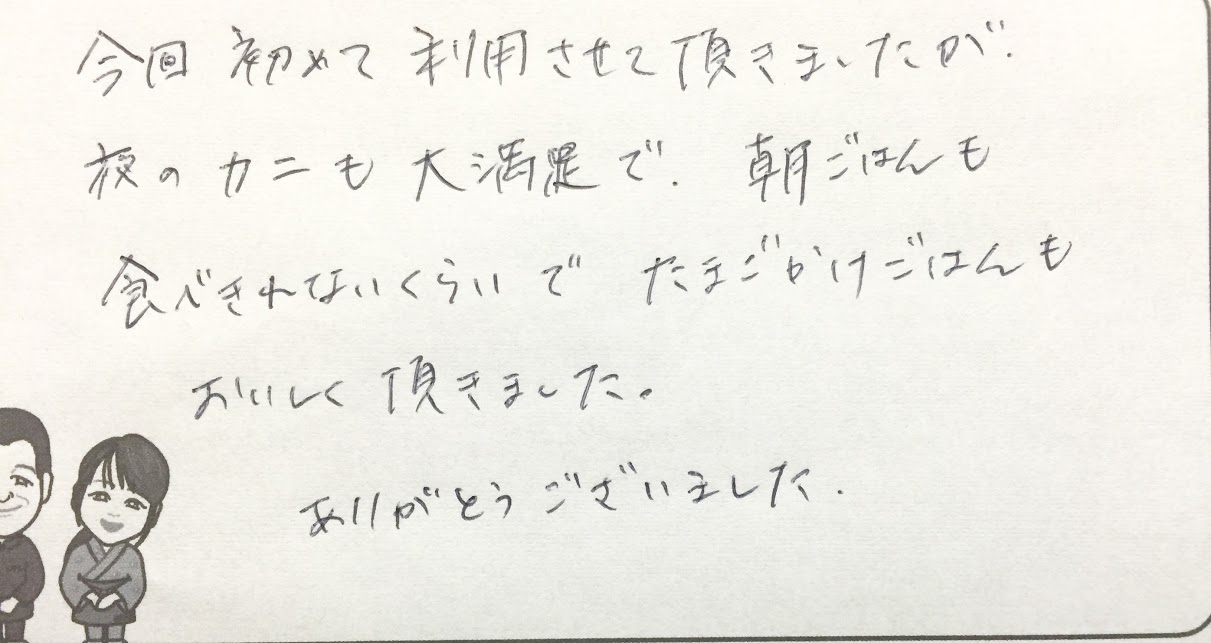 今回 初めて 利用させて頂きましたが.
夜の カニも 大満足で. 朝ごはんも
食べきれないくらいで たまごかけごはんも
おいしく 頂きました。
ありがとうございました.